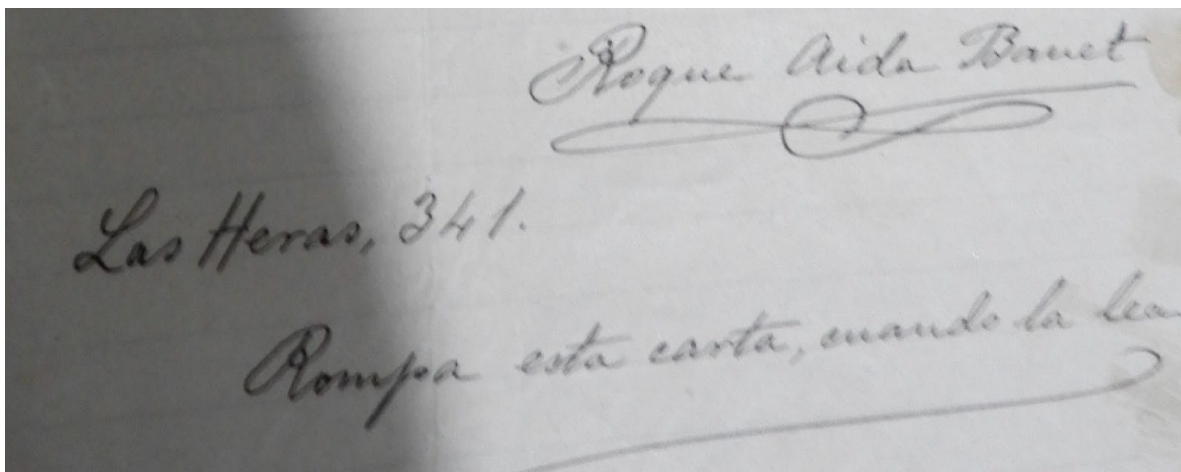 Roque Aida Banet
Las Heras, 341.
Rompa esta carta, cuando la lea